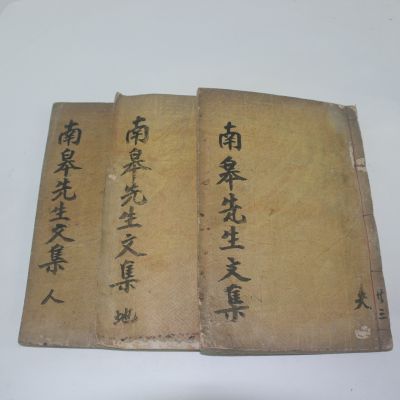 南皐先生文集
天
共三
南皐先生文集
地
南皐先生文集
人